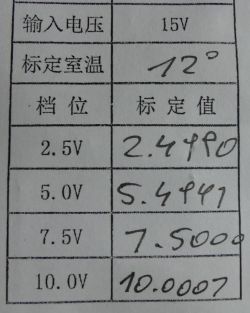 输入电压 15V
标定室温 12°
档 位 标 定 值
2.5V 2.4990
5.0V 5.4991
7.5V 7.5000
10.0V 10.0007